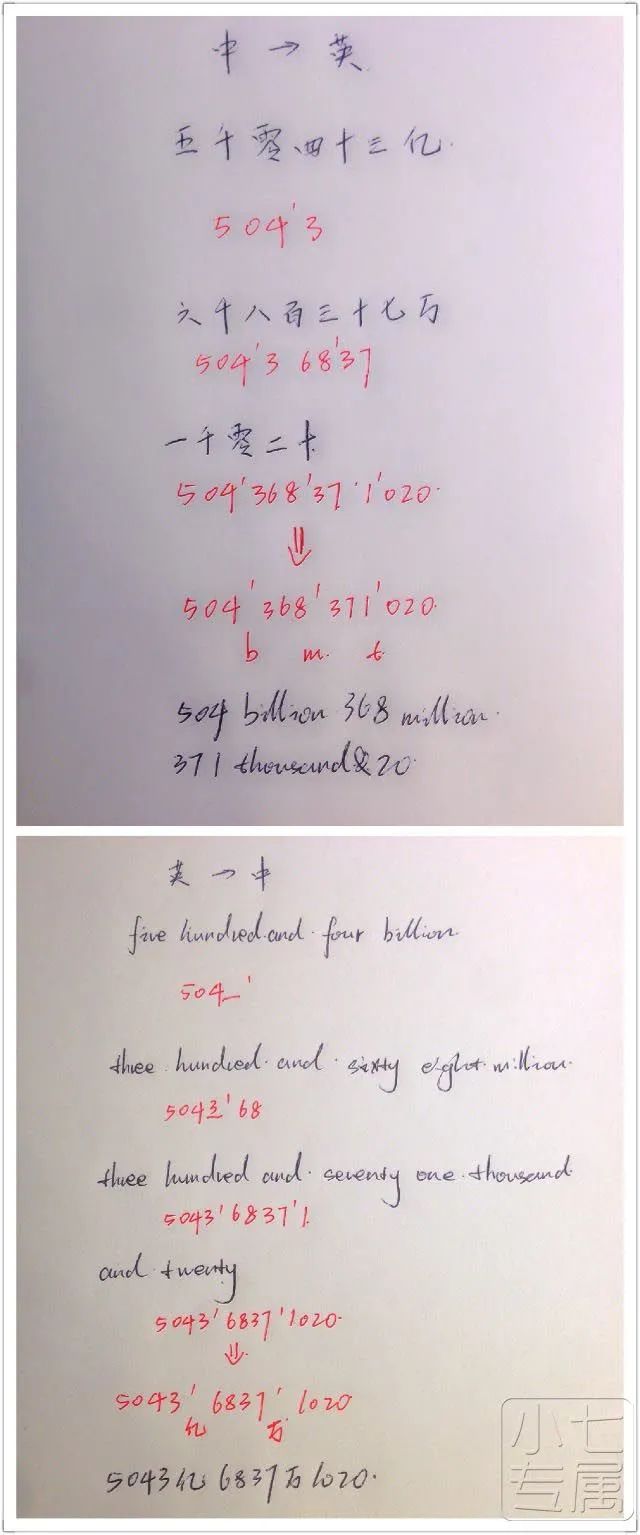 中→英
五千零四十三亿.
504'3
六千八百三十七万
504'3 68'37
一千零二十
504'368'37'1'020.
⇓
504'368'371'020.
b m. t.
504 billion 368 million.
371 thousand & 20.
英→中
five hundred and four billion
504_'
three hundred and sixty eight million.
5043'68
three hundred and seventy one thousand
5043'6837'1
and twenty
5043'6837'1020.
⇓
5043'6837'1020
亿 万
5043亿6837万1020.
小七
专属